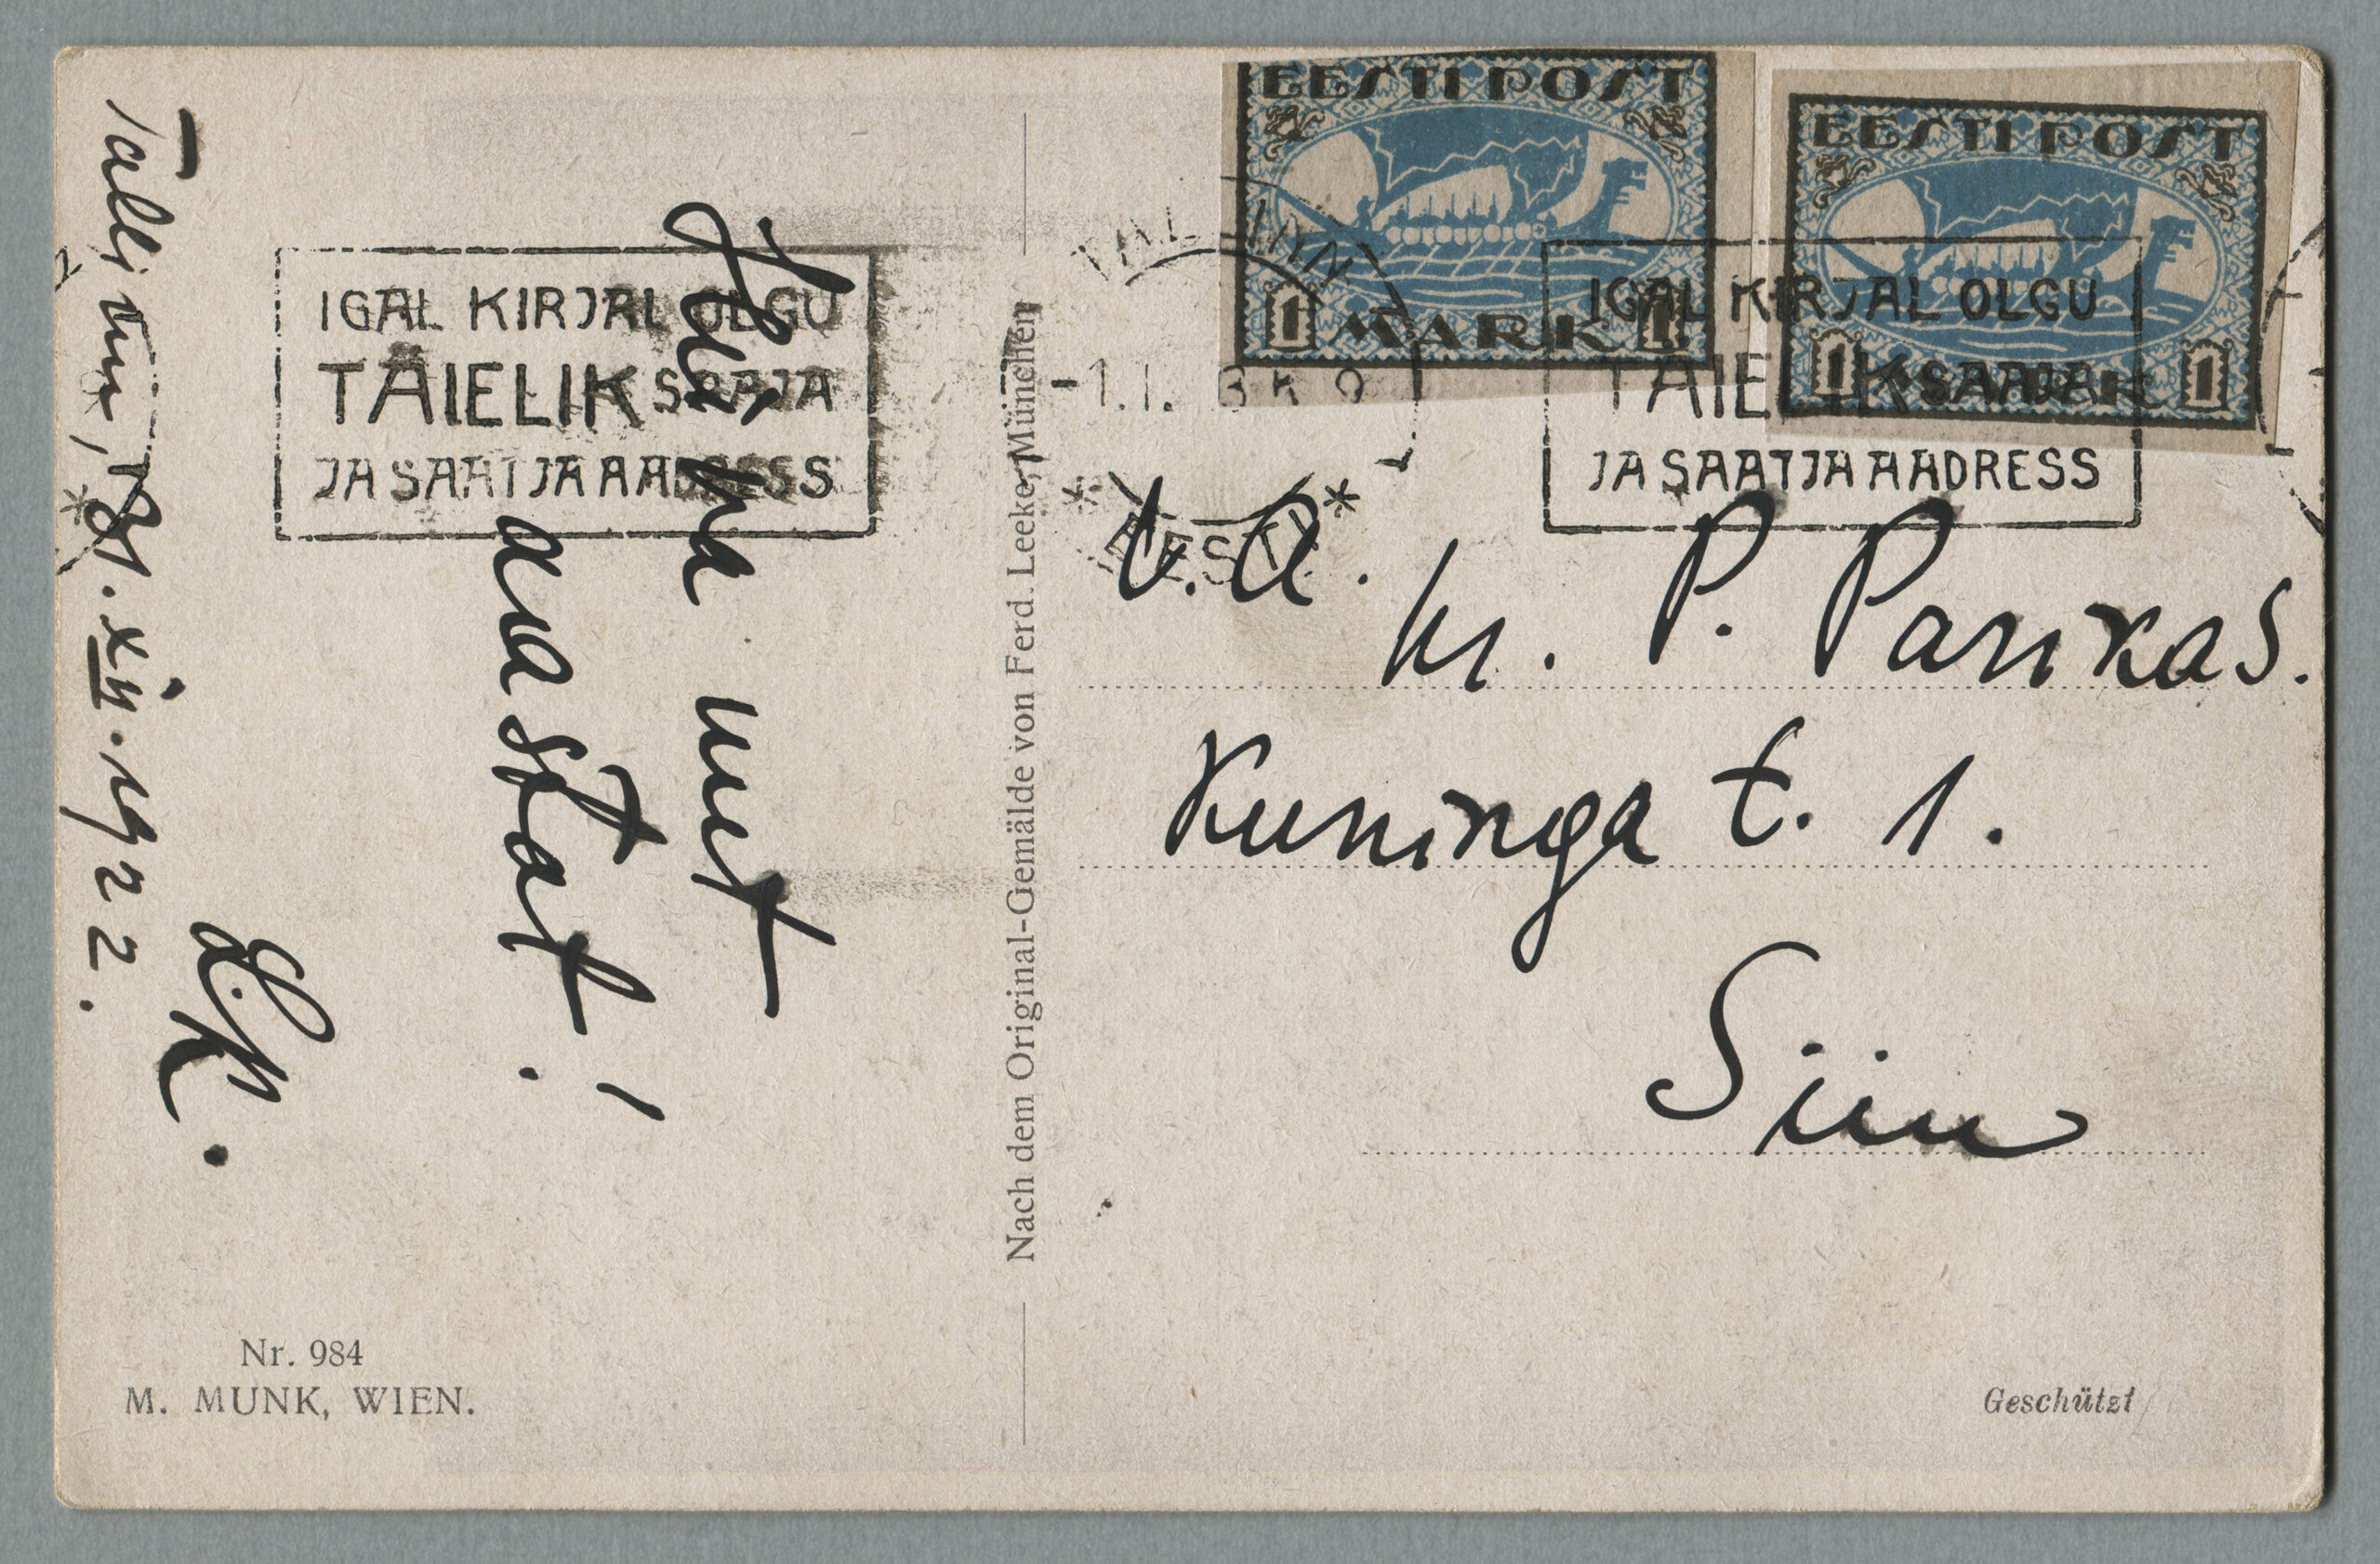 Tallinn, 31. XII. 1922.
Head
uut
aastat!
L.K.
IGAL KIRJAL OLGU
TÄIELIK SAAJA
JA SAATJA AADRESS
Nr. 984
M. MUNK, WIEN.
Nach dem Original-Gemälde von Ferd. Leeke, München
EESTI POST
1 MARK 1
EESTI POST
1 MARK 1
TALLINN
-1.I.
* EESTI *
IGAL KIRJAL OLGU
TÄIELIK SAAJA
JA SAATJA AADRESS
V. A.
hr. P. Parikas.
Kuninga t. 1.
Siin
Geschützt